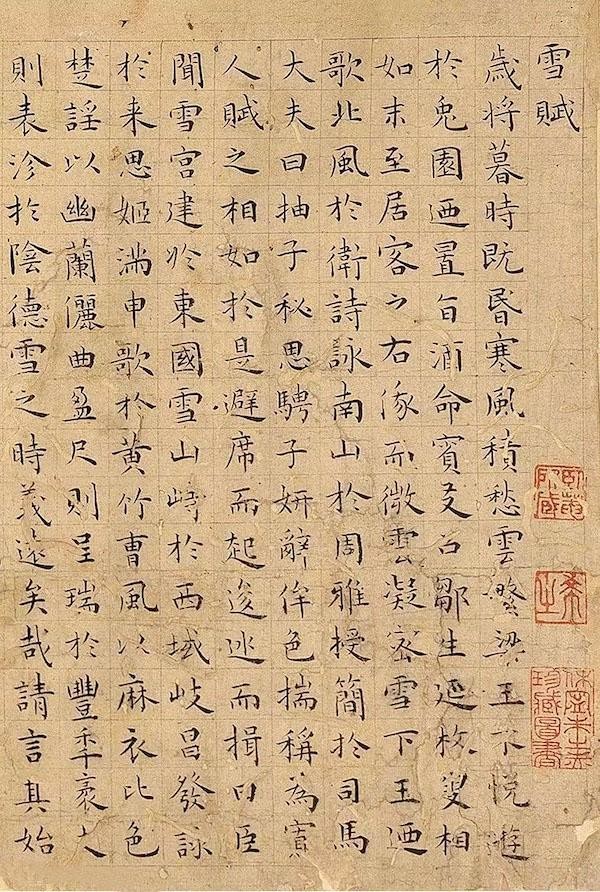 雪賦
歲将暮時既昏寒風積愁雲繁梁王不悅遊
於兎園迺置旨酒命賓友召鄒生延枚叟相
如末至居客之右俄而微雲凝密雪下王迺
歌北風於衛詩詠南山於周雅授簡於司馬
大夫曰抽子秘思騁子妍辭侔色揣稱為寡
人賦之相如於是避席而起逡巡而揖曰臣
聞雪宮建於東國雪山峙於西域岐昌發詠
於来思姬滿申歌於黄竹曹風以麻衣比色
楚謡以幽蘭儷曲盈尺則呈瑞於豐年袤丈
則表沴於陰德雪之時義遠矣哉請言其始
臥菴所藏
休寧朱之赤珍藏圖書